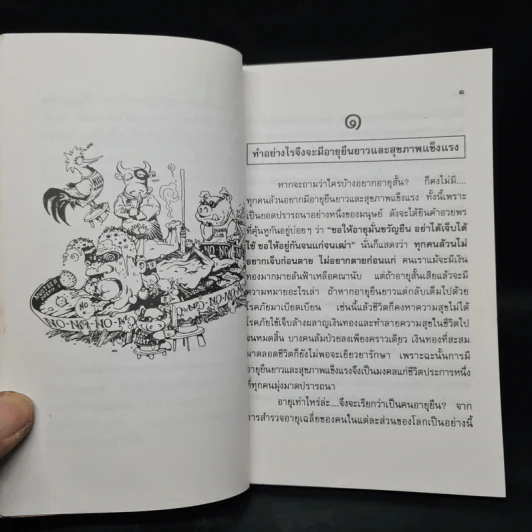 NO-NON-NO-NO-NO
๑
๑
ทำอย่างไรจึงจะมีอายุยืนยาวและสุขภาพแข็งแรง
หากจะถามว่าใครบ้างอยากอายุสั้น? ก็คงไม่มี....
ทุกคนล้วนอยากมีอายุยืนยาวและสุขภาพแข็งแรง ทั้งนี้เพราะ
เป็นยอดปรารถนาอย่างหนึ่งของมนุษย์ ดังจะได้ยินคำอวยพร
ที่คุ้นหูกันอยู่บ่อยๆ ว่า "ขอให้อายุมั่นขวัญยืน อย่าได้เจ็บได้
ไข้ ขอให้อยู่กันจนแก่จนเฒ่า" นั่นก็แสดงว่า ทุกคนล้วนไม่
อยากเจ็บก่อนตาย ไม่อยากตายก่อนแก่ คนเราแม้จะมีเงิน
ทองมากมายล้นฟ้าเหลือคณานับ แต่ถ้าอายุสั้นเสียแล้วจะมี
ความหมายอะไรเล่า ถ้าหากอายุยืนยาวแต่กลับเต็มไปด้วย
โรคภัยมาเบียดเบียน เช่นนี้แล้วชีวิตก็คงหาความสุขไม่ได้
โรคภัยไข้เจ็บล้างผลาญเงินทองและทำลายความสุขในชีวิตไป
จนหมดสิ้น บางคนล้มป่วยลงเพียงคราวเดียว เงินทองที่สะสม
มาตลอดชีวิตก็ยังไม่พอจะเยียวยารักษา เพราะฉะนั้นการมี
อายุยืนยาวและสุขภาพแข็งแรงจึงเป็นมงคลแก่ชีวิตประการหนึ่ง
ที่ทุกคนมุ่งมาดปรารถนา
อายุเท่าไหร่ล่ะ....จึงจะเรียกว่าเป็นคนอายุยืน? จาก
การสำรวจอายุเฉลี่ยของคนในแต่ละส่วนของโลกเป็นอย่างนี้